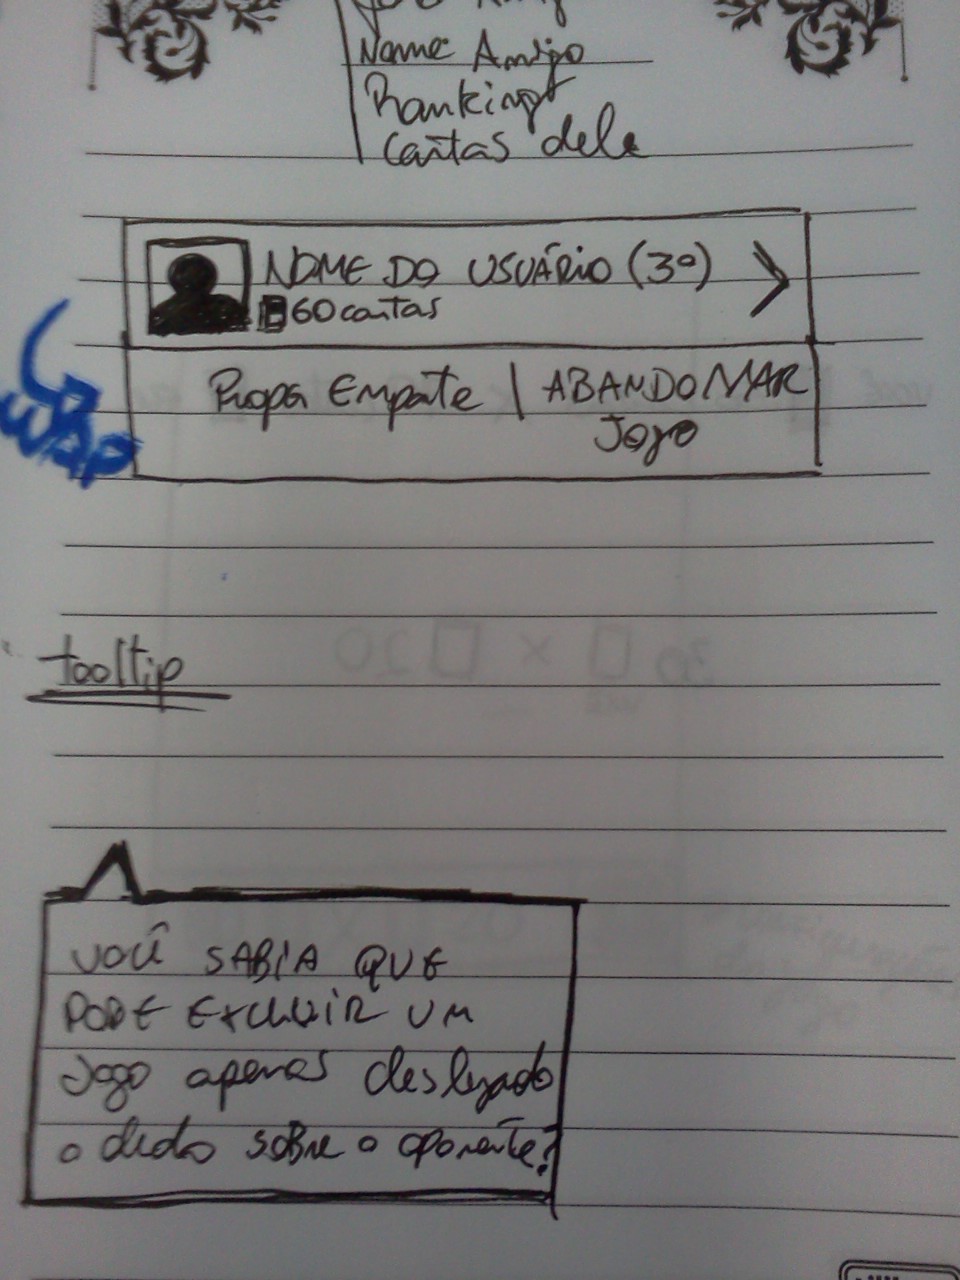 Nome Amigo
Ranking
Cartas dele
NOME DO USUÁRIO (3º)
60 cartas
Propor Empate | ABANDONAR
Jogo
WAP
tooltip
30 X 20
VOCÊ SABIA QUE
PODE EXCLUIR UM
Jogo apenas deslizado
o dedo sobre o oponente?